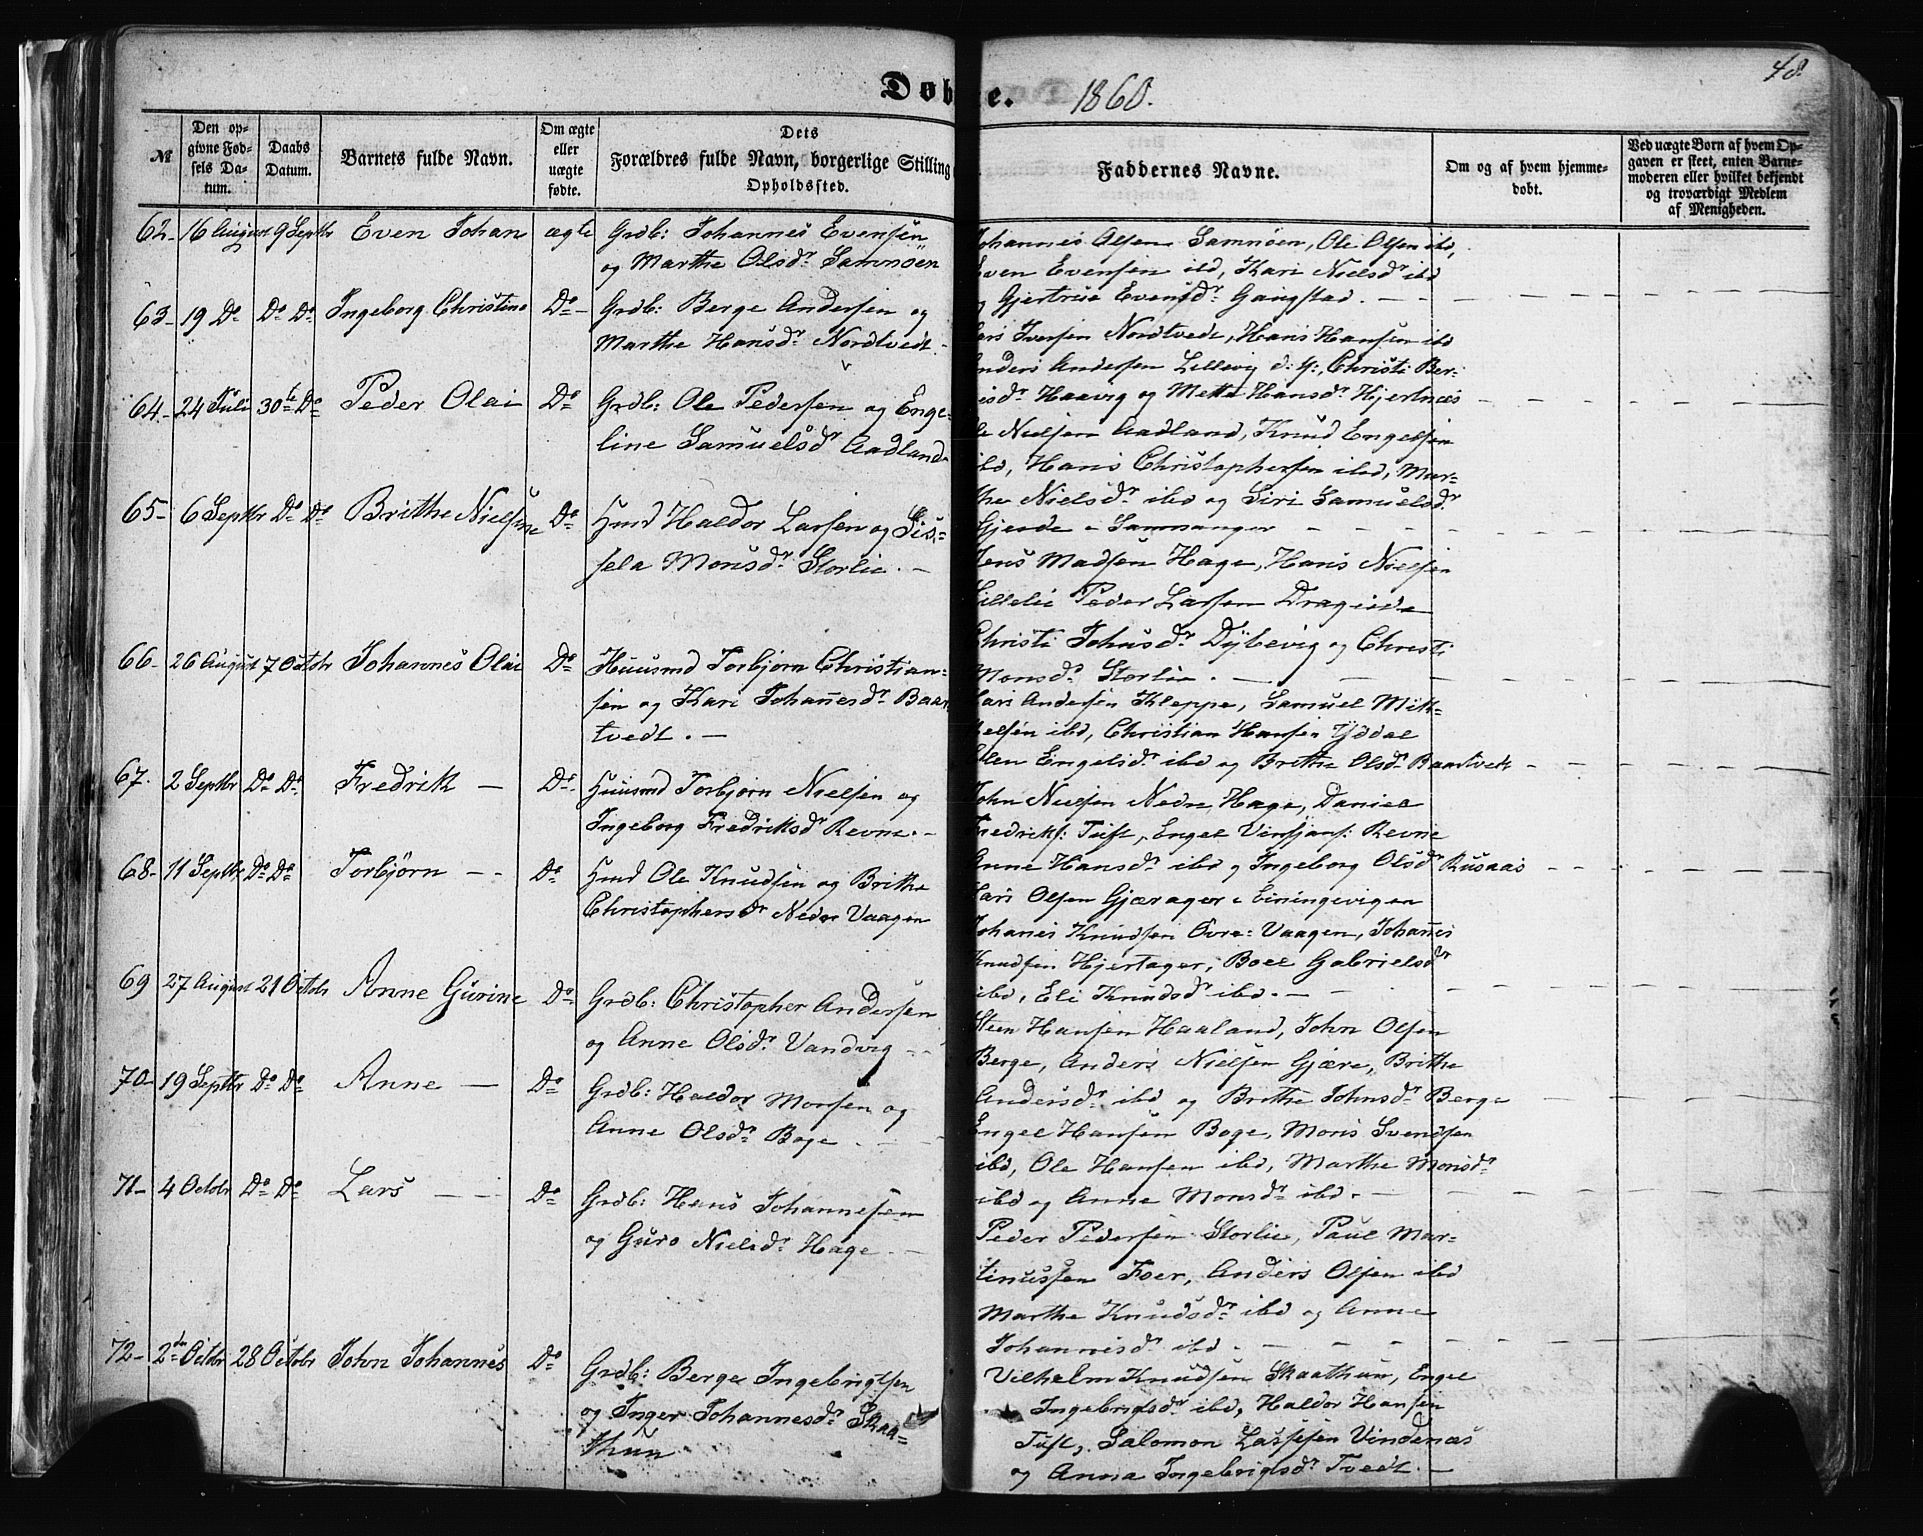 48.
Døbte. 1860.
№
Den opgivne Fødsels Datum.
Daabs Datum.
Barnets fulde Navn.
Om ægte eller uægte fødte.
Dets Forældres fulde Navn, borgerlige Stilling
Opholdssted.
Faddernes Navne.
Om og af hvem hjemmedøbt.
Ved uægte Børn af hvem Opgaven er skeet, enten Barnemoderen eller hvilket bekjendt og troværdigt Medlem af Menigheden.
62- 16 August 9 Septbr Even Johan ægte Grdb: Johannes Evensen
og Marthe Olsdr. Samnøen
Johannes Olsen Samnøen, Ole Olsen ibd,
Even Evensen ibd, Kari Nielsdr ibd
og Gjertrue Evensdr. Gangstad.
63- 19 Do Do Do Ingeborg Christine Do Grdb: Berge Andersen og
Marthe Hansdr. Nordtvedt.
Lars Iversen Nordtvedt, Hans Hansen ibd
Anders Andersen Lillevig d: y:, Christi Ber-
isdr Haavig og Mette Hansdr. Hjertnæs
64- 24 Juli 30te Do Peder Olai Do Grdb: Ole Pedersen og Enge-
line Samuelsdr Aadland.
Ole Nielsen Aadland, Knud Engelsen
ibd, Hans Christophersen ibd, Mar-
the Nielsdr ibd og Siri Samuelsdr.
Gjerde i Sammanger
65- 6 Septbr Do Do Brithe Nielsine Do Hmd Haldor Larsen og Sis-
sela Monsdr. Storlie.
Jens Madsen Hage, Hans Nielsen
Lillelie Peder Larsen Drageide
Christi Johnsdr. Dybevig og Christi
Monsdr. Storlie.
66- 26 August 7 Octobr Johannes Olai Do Huusmd Torbjørn Christian-
sen og Kari Johannesdr. Baar
tvedt.
Lars Andersen Kleppe, Samuel Mik-
kelsen ibd, Christian Hansen Yddal
Elen Engelsdr. ibd og Brithe Olsdr. Baartvedt
67. 2 Septbr Do Do Fredrik Do. Huusmd Torbjørn Nielsen og
Ingeborg Fredriksdr Revne.
John Nielsen Nedre Hage, Daniel
Fredriks: Tuft, Engel Vinsjans: Revne
Anne Hansdr. ibd og Ingeborg Olsdr Rusaas
68- 11 Septbr Do Do Torbjørn Do Hmd Ole Knudsen og Brithe
Christophersdr Nedre Vaagen
Lars Olsen Gjærager i Einingevigen
Johanes Knudsen Øvre: Vaagen, Johannes
Knudsen Hjertager, Boel Gabrielsdr
ibd, Eli Knudsdr ibd.
69 27 August 21 Octobr Anne Gurine Do Grdb: Christopher Andersen
og Anne Olsdr. Vandvig
Steen Hansen Haaland, John Olsen
Berge, Anders Nielsen Gjære, Brithe
Andersdr ibd og Brithe Johnsdr. Berge
70- 19 Septbr Do Do Anne Do Grdb: Haldor Monsen og
Anne Olsdr. Boge.
Engel Hansen Boge, Mons Svendsen
ibd, Ole Hansen ibd, Marthe Monsdr
ibd og Anne Monsdr ibd.
71- 4 Octobr Do Do Lars Do Grdb: Hans Johannesen
og Guro Nielsdr. Hage.
Peder Pedersen Storlie, Paul Mar-
tinussen Foer, Anders Olsen ibd
Marthe Knudsdr. ibd og Anne
Johannesdr ibd.
72- 2den Octbr 28 Octobr John Johannes Do Grdb: Berge Ingebrigtsen
og Inger Johannesdr. Skaa-
thun
Vilhelm Knudsen Skaathun, Engel
Ingebrigtsdr. ibd, Haldor Hansen
Tuft, Salomon Lassesen Vindenæs
og Anna Ingebrigtsdr. Tvedt.